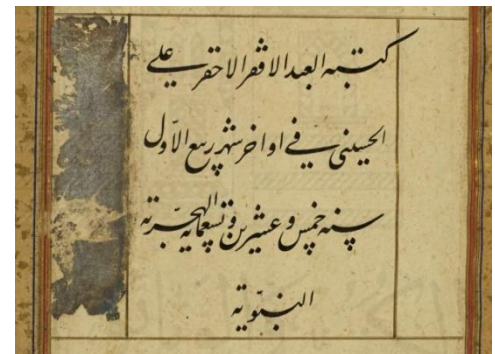 كتبه العبد الافقر الاحقر علي
الحسيني في اواخر شهر ربيع الاول
سنه خمس و عشرين و تسعمايه الهجريّه
النبويّه